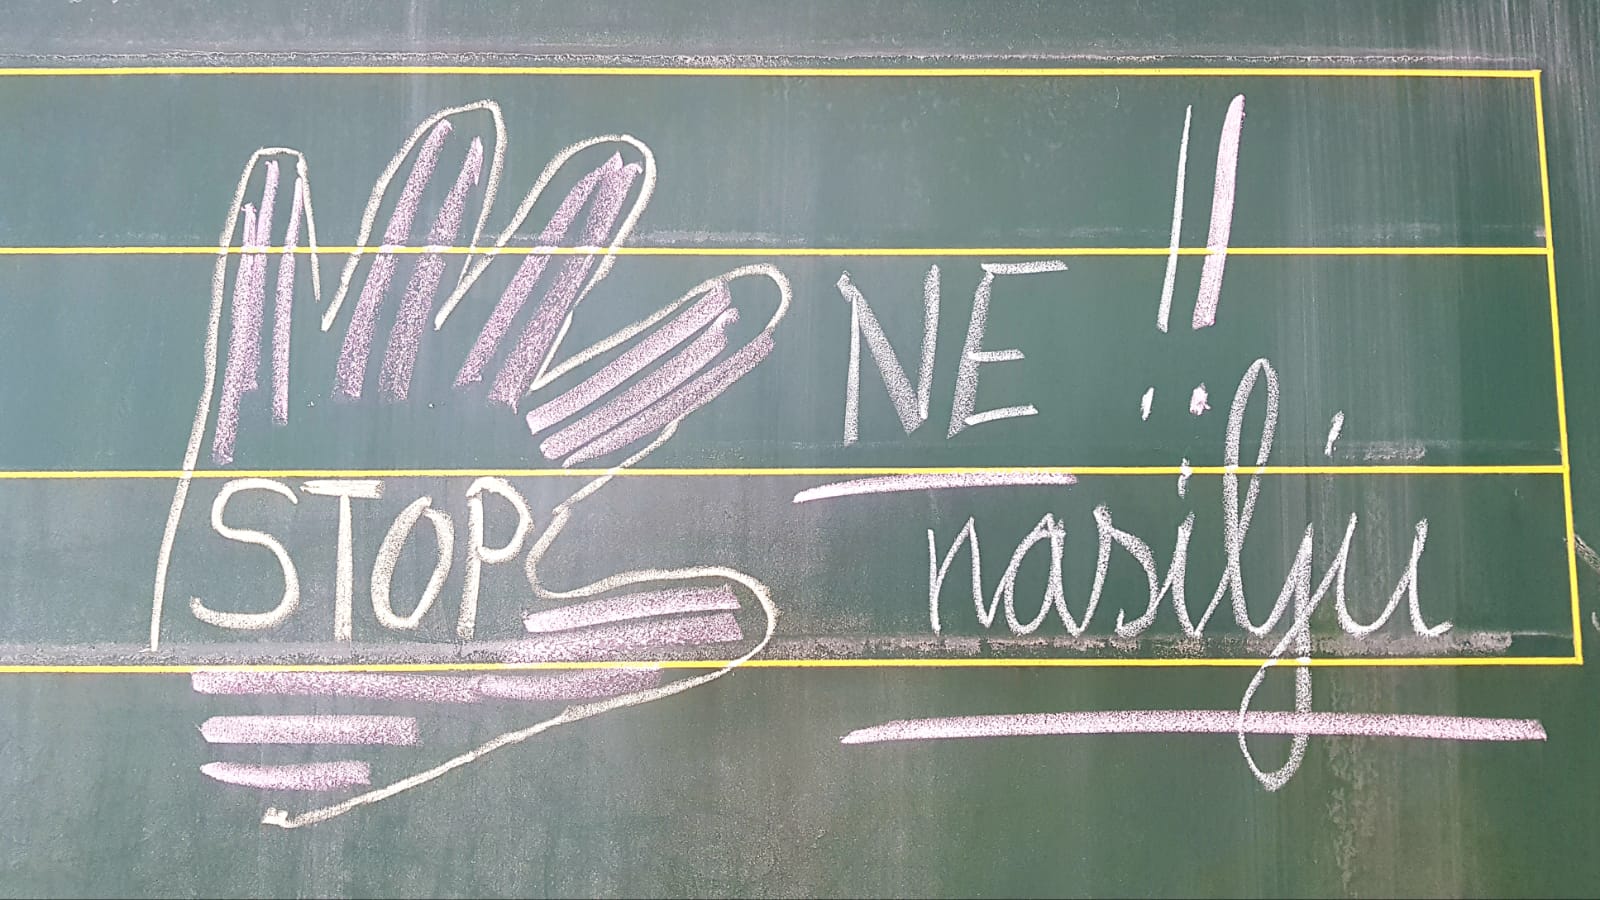 STOP
NE !!
nasilju